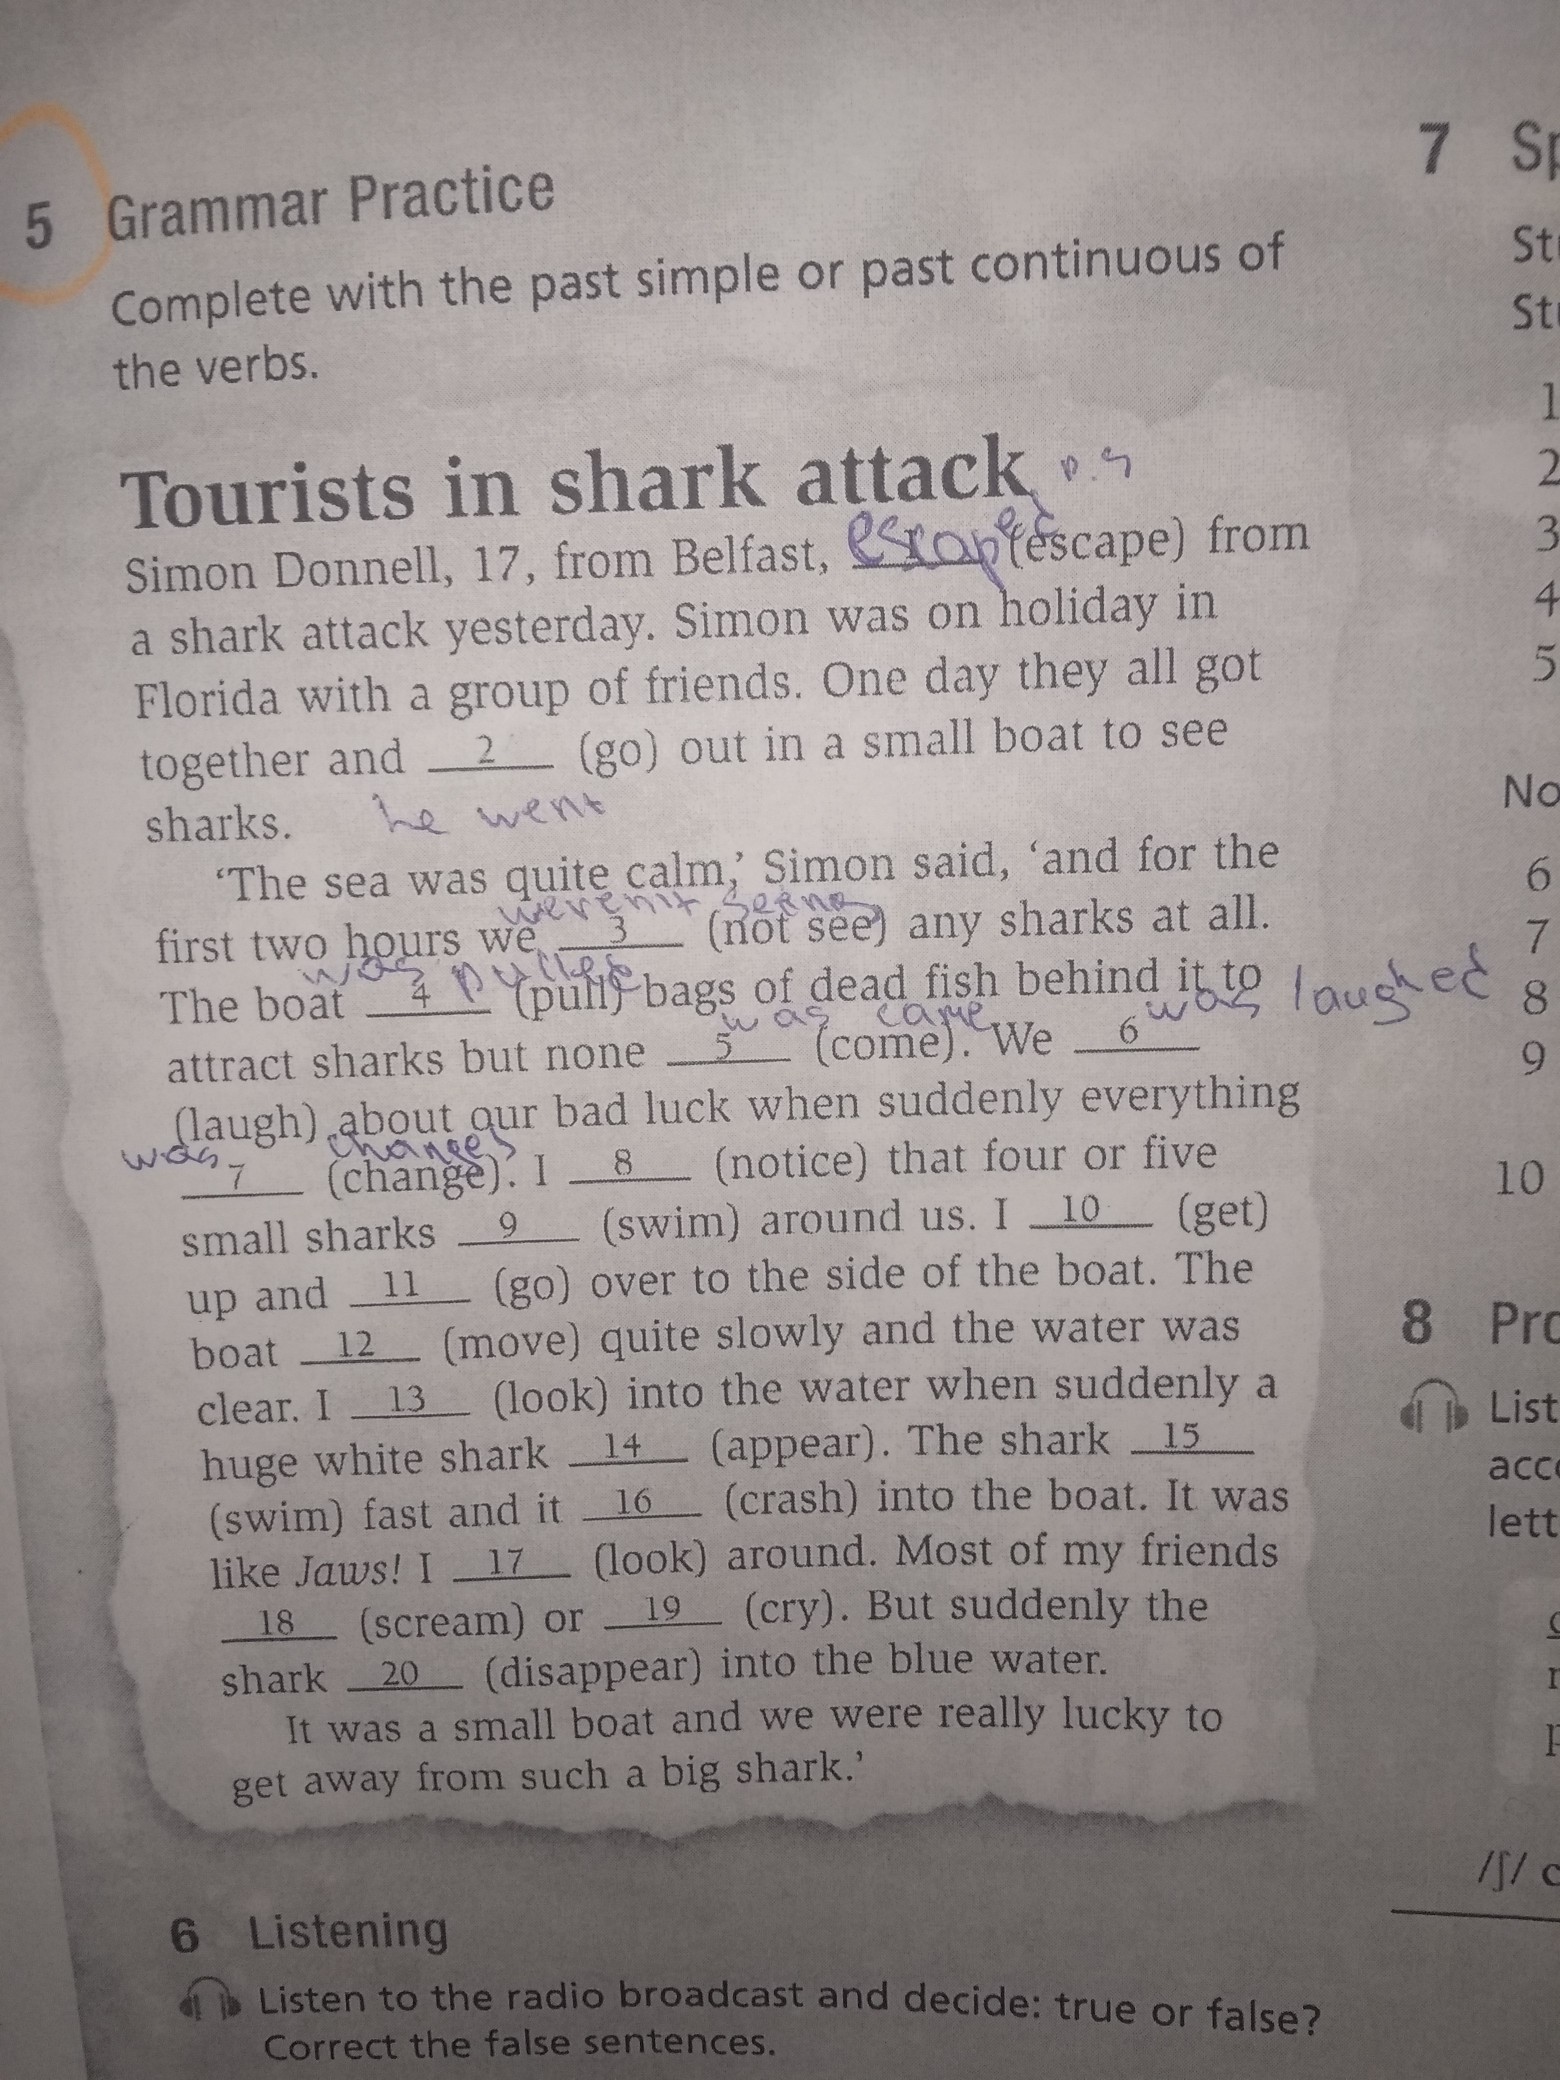 5 Grammar Practice
Complete with the past simple or past continuous of
the verbs.
Tourists in shark attack p.s
Simon Donnell, 17, from Belfast, escaped 1 (escape) from
a shark attack yesterday. Simon was on holiday in
Florida with a group of friends. One day they all got
together and 2 (go) out in a small boat to see
sharks. he went
'The sea was quite calm,' Simon said, 'and for the
weren't seeing
first two hours we 3 (not see) any sharks at all.
was pulled
The boat 4 (pull) bags of dead fish behind it to
was came was laughed
attract sharks but none 5 (come). We 6
(laugh) about our bad luck when suddenly everything
was changed
7 (change). I 8 (notice) that four or five
small sharks 9 (swim) around us. I 10 (get)
up and 11 (go) over to the side of the boat. The
boat 12 (move) quite slowly and the water was
clear. I 13 (look) into the water when suddenly a
huge white shark 14 (appear). The shark 15
(swim) fast and it 16 (crash) into the boat. It was
like Jaws! I 17 (look) around. Most of my friends
18 (scream) or 19 (cry). But suddenly the
shark 20 (disappear) into the blue water.
It was a small boat and we were really lucky to
get away from such a big shark.'
6 Listening
Listen to the radio broadcast and decide: true or false?
Correct the false sentences.
7 Sp
St
St
1
2
3
4
5
No
6
7
8
9
10
8 Pro
List
acc
lett
/ʃ/ c